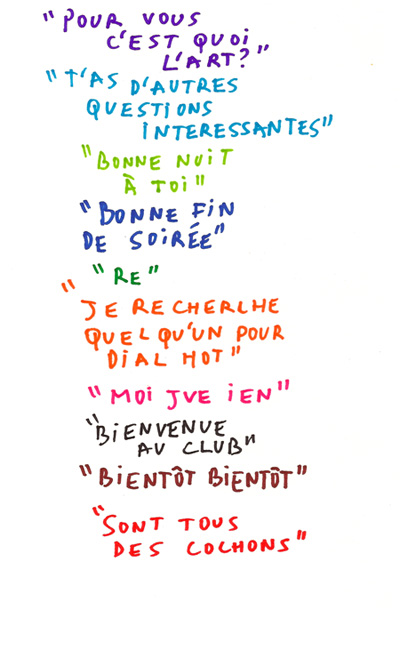 "POUR VOUS
C'EST QUOI
L'ART?"
"T'AS D'AUTRES
QUESTIONS
INTERESSANTES"
"BONNE NUIT
À TOI"
"BONNE FIN
DE SOIRÉE"
"RE"
"
JE RECHERCHE
QUELQU'UN POUR
DIAL HOT"
"MOI JVE IEN"
"BIENVENUE
AU CLUB"
"BIENTÔT BIENTÔT"
"SONT TOUS
DES COCHONS"